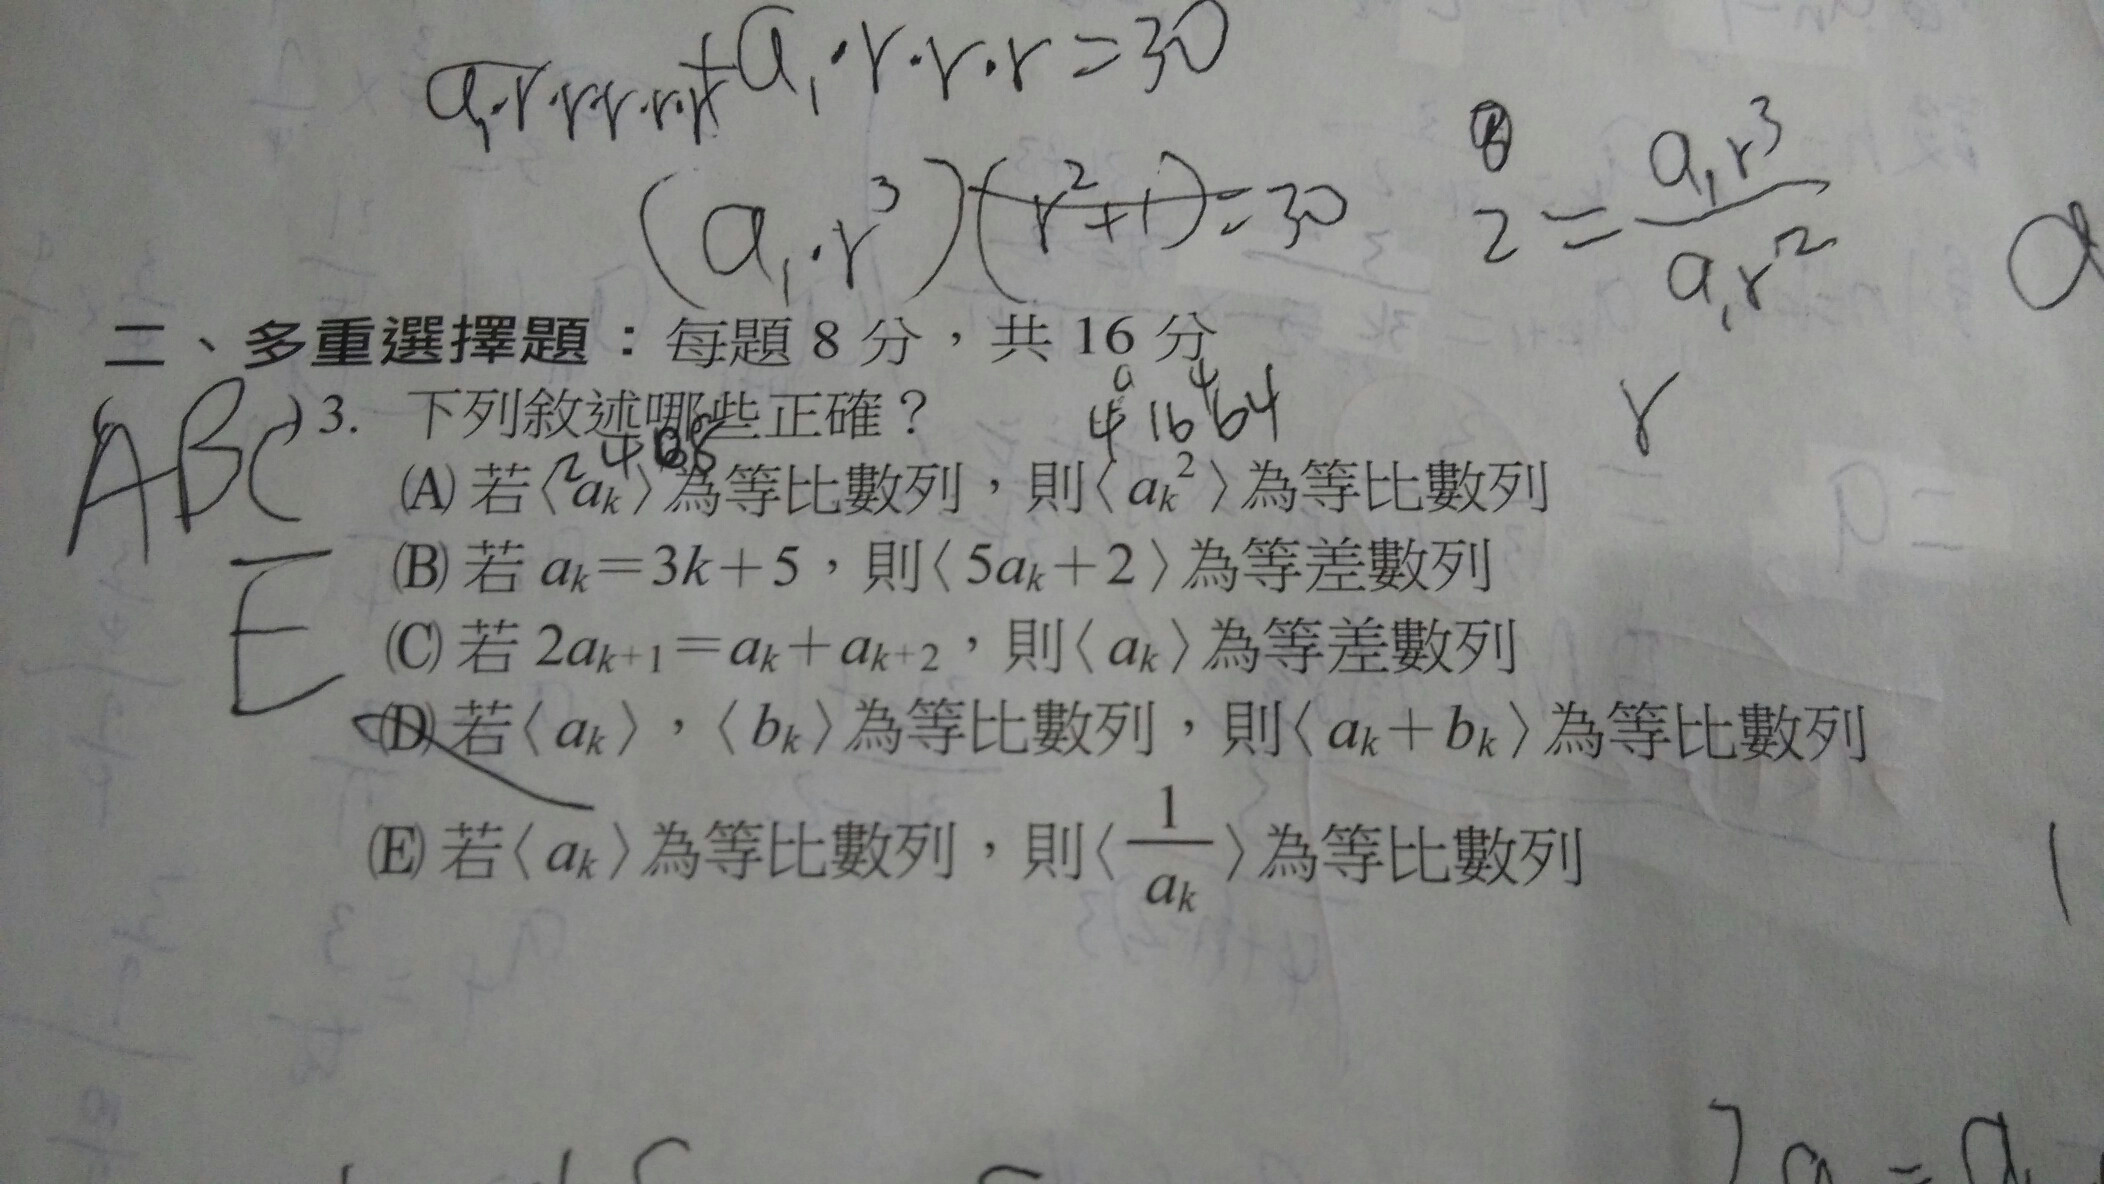 a₁·r·r·r·r·r+a₁·r·r·r=30
(a₁·r³)(r²+1)=30
2=a₁r³/a₁r²
r
二、多重選擇題：每題 8 分，共 16 分
ABC
E
3. 下列敘述哪些正確？
4 16 64
2 4 8
(A) 若〈aₖ〉為等比數列，則〈aₖ²〉為等比數列
(B) 若 aₖ=3k+5，則〈5aₖ+2〉為等差數列
(C) 若 2aₖ₊₁=aₖ+aₖ₊₂，則〈aₖ〉為等差數列
(D) 若〈aₖ〉，〈bₖ〉為等比數列，則〈aₖ+bₖ〉為等比數列
(E) 若〈aₖ〉為等比數列，則〈1/aₖ〉為等比數列